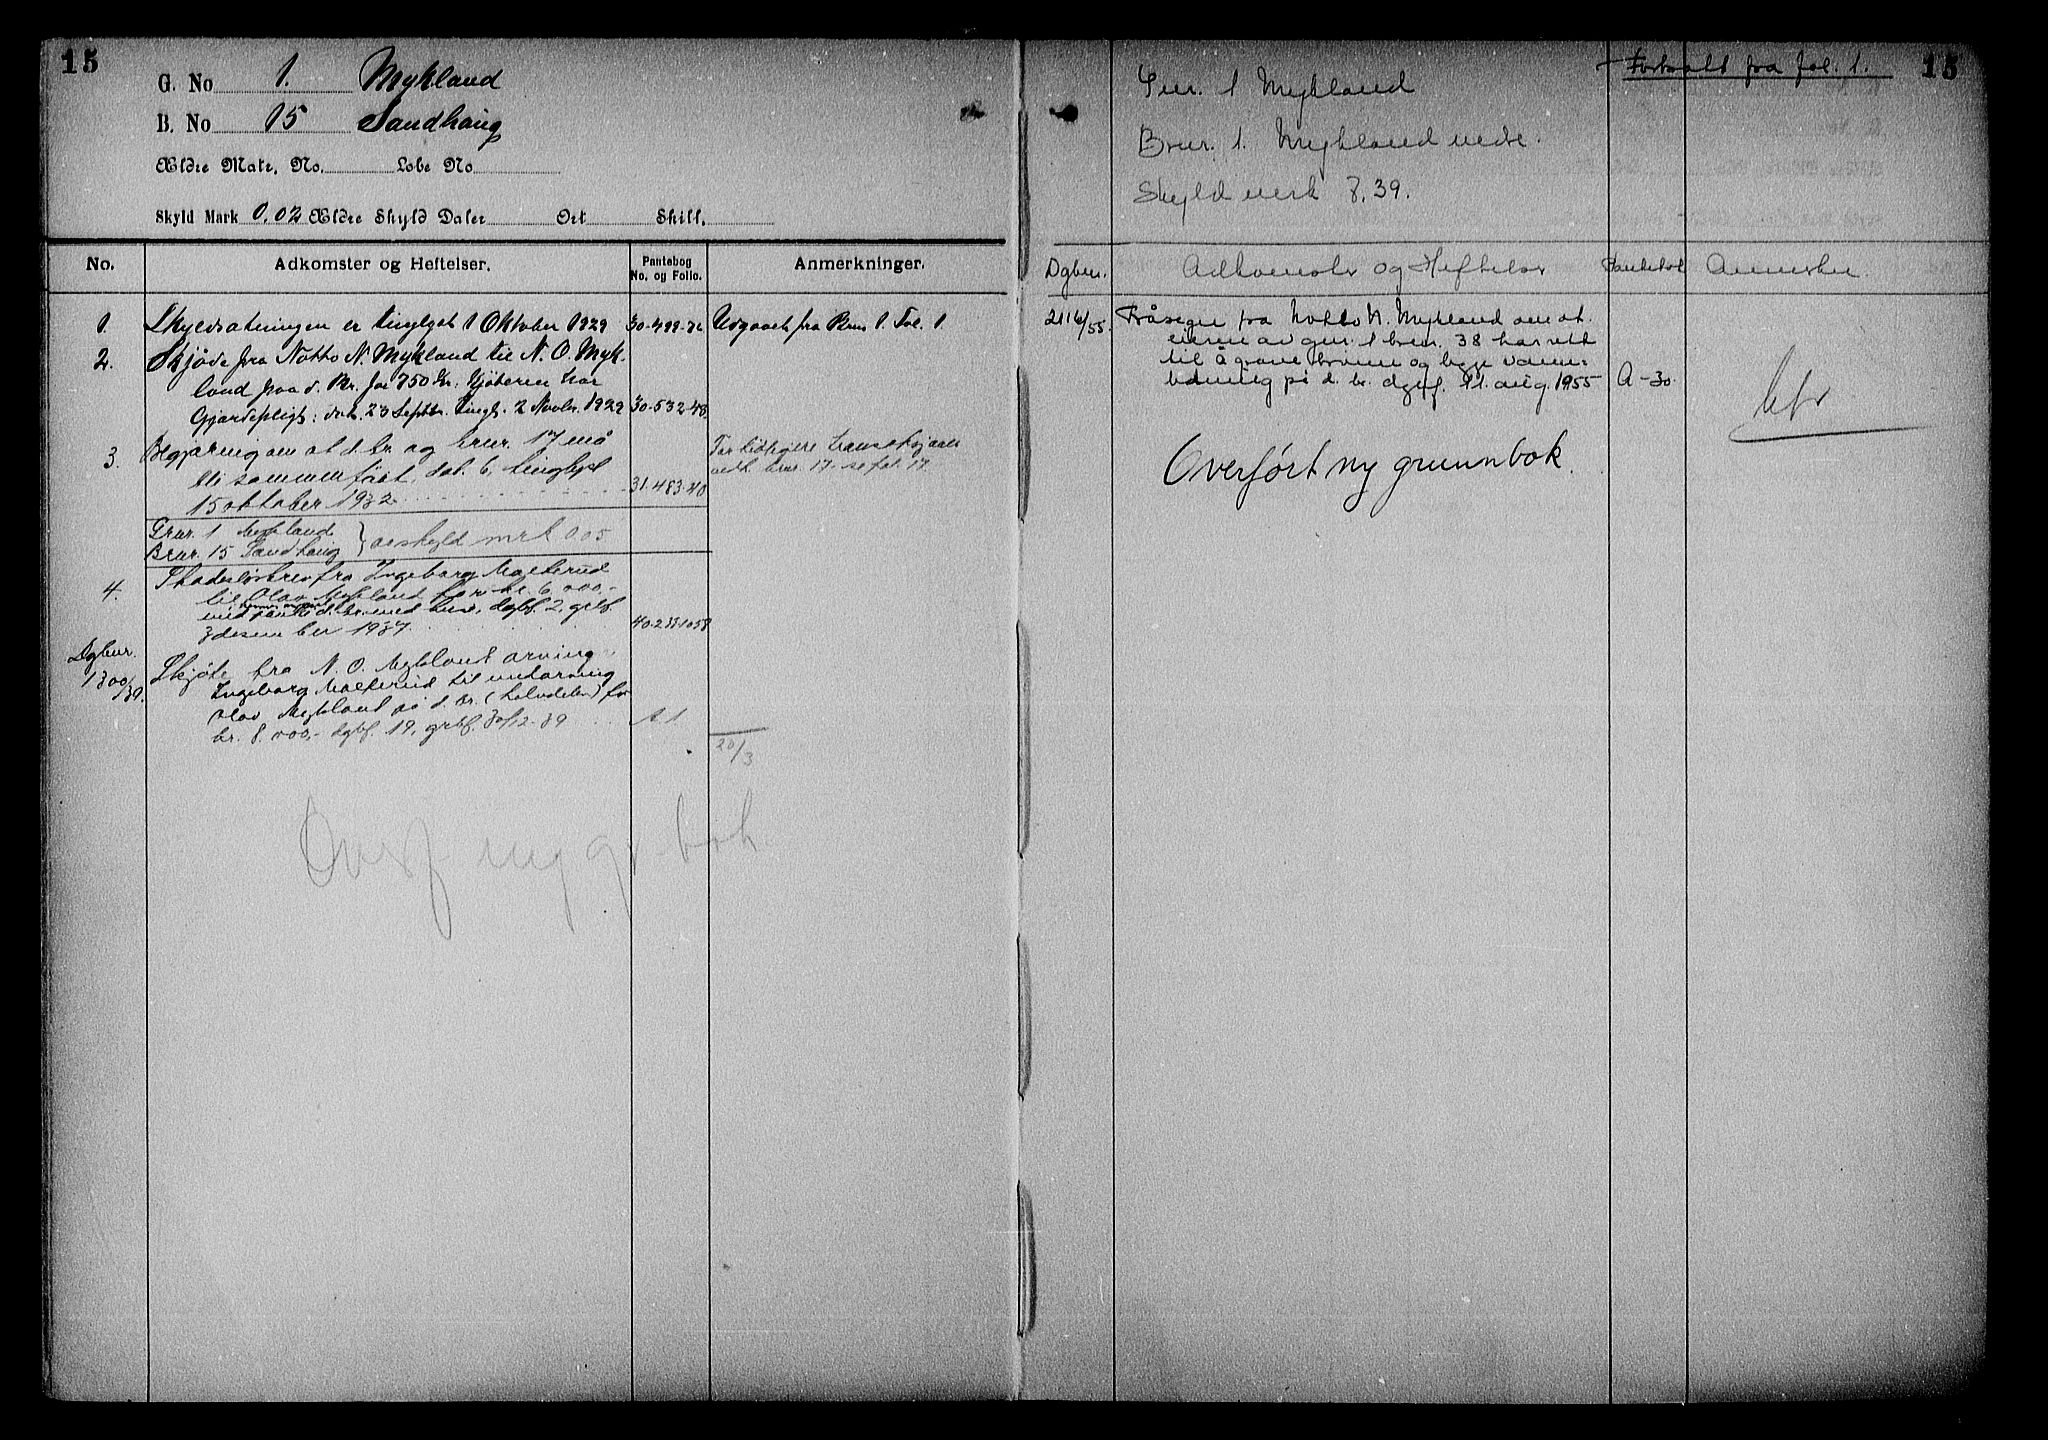 15
G. No 1. Mykland
B. No 15 Sandhaug
Ældre Matr. No. Løbe No
Skyld Mark 0.02 Ældre Skyld Daler Ort Skill.
No. Adkomster og Heftelser. Pantebog No. og Folio. Anmerkninger.
1. Skyldsætningen er tinglyst 1 Oktober 1929 30-499-76 Utgaaet fra Bnr 1. Fol. 1
2. Skjøde fra Notto N. Mykland til N. O. Myk-
land paa d. Br. for 750 Kr. Kjøberen har
Gjærdepligt: dat. 23 Septbr. tingl. 2 Novbr. 1929 30-532-48
3. Begjæring om at d. br. og brnr. 17 må
bli sammenføiet, dat. 6. tinglyst
15 oktober 1932 31-483-40
For tidligere transaksjoner
vedk. brnr. 17. se fol. 17.
Gnr. 1 Mykland
Brnr. 15 Sandhaug } av skyld mrk 0.05
4. Skadesløsbrev fra Ingeborg Molterud
til Olav Mykland for kr. 6.000,-
med pant i d. br. med hus, dgbf. 2, grbf.
3 desember 1937 40-237-1058
Dgbnr. 1300/39. Skjøte fra N. O. Mykland arving
Ingeborg Molterud til medarving
Olav Mykland på d. br. (halvdelen) for
kr. 8.000,- dgbf. 19, grbf. 30/12-39 A1
20/3
Overf ny gr.bok
Fortsatt fra fol. 1. 15
Gnr. 1 Mykland
Brnr. 1. Mykland nedre.
Skyld mrk 8.39.
Dgbnr. Adkomster og Heftelser Pantebok Anmerkn.
2116/55. Fråsegn fra Notto N. Mykland om at
eieren av gnr. 1 brnr. 38 har rett
til å grave brønn og legge vann-
ledning på d. br. dgbf. 11. aug. 1955 A-30
Overført ny grunnbok.